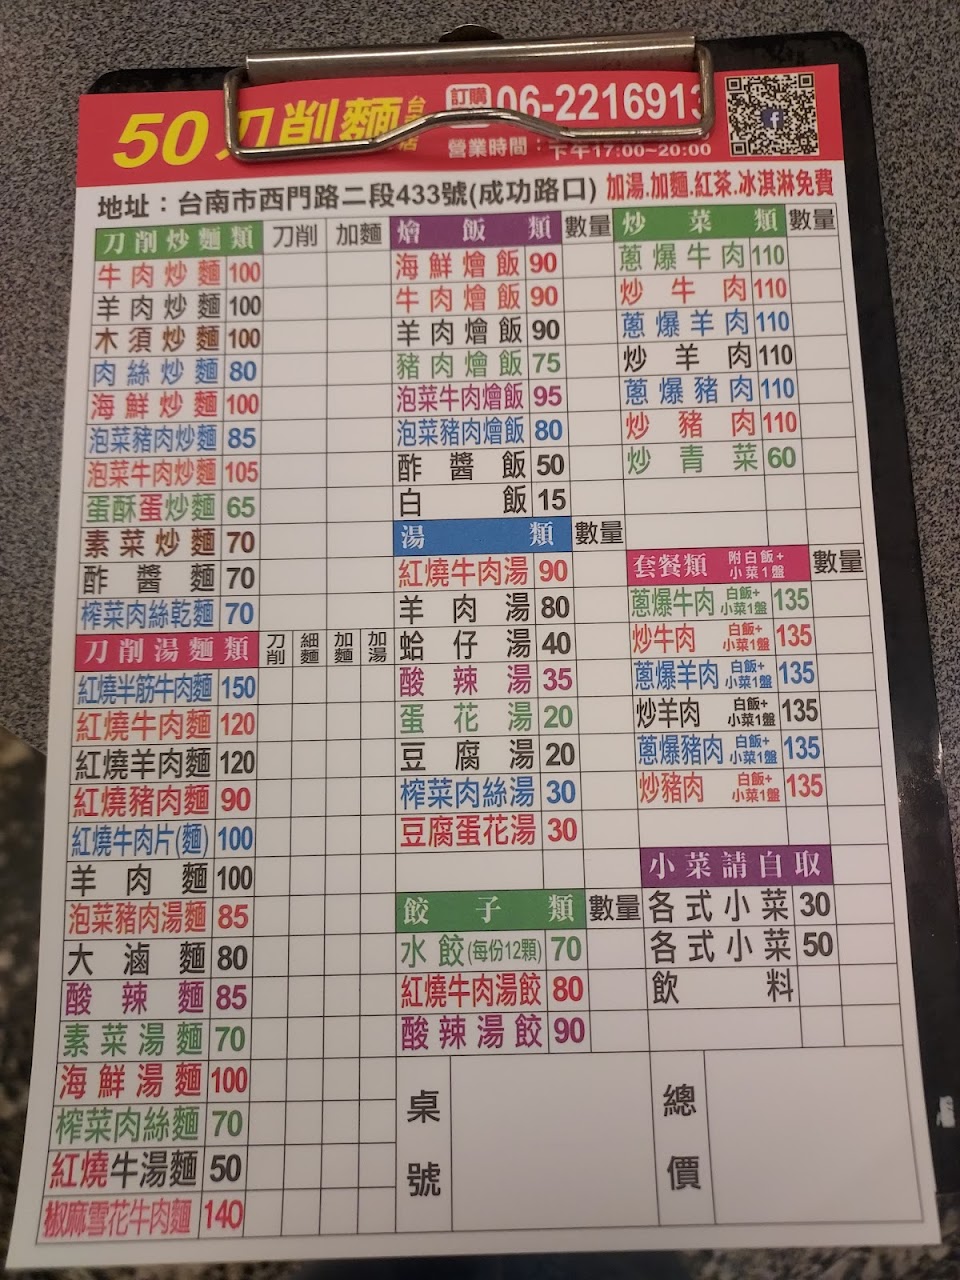 50刀削麵 台
店
訂購 06-2216913
營業時間：下午17:00~20:00
地址：台南市西門路二段433號(成功路口) 加湯.加麵.紅茶.冰淇淋免費
刀削炒麵類 刀削 加麵
牛肉炒麵 100
羊肉炒麵 100
木須炒麵 100
肉絲炒麵 80
海鮮炒麵 100
泡菜豬肉炒麵 85
泡菜牛肉炒麵 105
蛋酥蛋炒麵 65
素菜炒麵 70
酢醬麵 70
榨菜肉絲乾麵 70
刀削湯麵類 刀削 細麵 加麵 加湯
紅燒半筋牛肉麵 150
紅燒牛肉麵 120
紅燒羊肉麵 120
紅燒豬肉麵 90
紅燒牛肉片(麵) 100
羊肉麵 100
泡菜豬肉湯麵 85
大滷麵 80
酸辣麵 85
素菜湯麵 70
海鮮湯麵 100
榨菜肉絲麵 70
紅燒牛湯麵 50
椒麻雪花牛肉麵 140
燴飯類 數量
海鮮燴飯 90
牛肉燴飯 90
羊肉燴飯 90
豬肉燴飯 75
泡菜牛肉燴飯 95
泡菜豬肉燴飯 80
酢醬飯 50
白飯 15
湯類 數量
紅燒牛肉湯 90
羊肉湯 80
蛤仔湯 40
酸辣湯 35
蛋花湯 20
豆腐湯 20
榨菜肉絲湯 30
豆腐蛋花湯 30
餃子類 數量
水餃(每份12顆) 70
紅燒牛肉湯餃 80
酸辣湯餃 90
炒菜類 數量
蔥爆牛肉 110
炒牛肉 110
蔥爆羊肉 110
炒羊肉 110
蔥爆豬肉 110
炒豬肉 110
炒青菜 60
套餐類 附白飯+小菜1盤 數量
蔥爆牛肉 白飯+小菜1盤 135
炒牛肉 白飯+小菜1盤 135
蔥爆羊肉 白飯+小菜1盤 135
炒羊肉 白飯+小菜1盤 135
蔥爆豬肉 白飯+小菜1盤 135
炒豬肉 白飯+小菜1盤 135
小菜請自取
各式小菜 30
各式小菜 50
飲料
桌號
總價